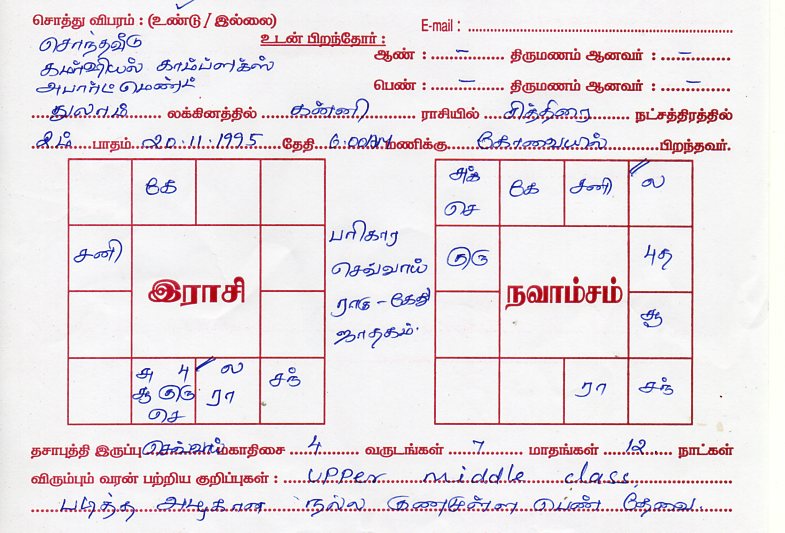 சொத்து விபரம் : (உண்டு / இல்லை) E-mail :
சொந்தவீடு
உடன் பிறந்தோர் :
ஆண் : – திருமணம் ஆனவர் : –
கமர்ஷியல் காம்ப்ளக்ஸ்
அபார்ட்மெண்ட்
பெண் : – திருமணம் ஆனவர் : –
துலாம் லக்கினத்தில் கன்னி ராசியில் சித்திரை நட்சத்திரத்தில்
2ம் பாதம் 20.11.1995 தேதி 6:00AM மணிக்கு கோவையில் பிறந்தவர்.
கே
சனி
இராசி
சு 4 ல சந்
ஆ குரு ரா
செ
பரிகார
செவ்வாய்
ராகு – கேது
ஜாதகம்.
கே சனி ல
செ
குரு 4த
நவாம்சம்
ஆ
ரா சந்
தசாபுத்தி இருப்பு செவ்வாய் மகாதிசை 4 வருடங்கள் 7 மாதங்கள் 12 நாட்கள்
விரும்பும் வரன் பற்றிய குறிப்புகள் : upper middle class,
படித்த அழகான நல்ல குணமுள்ள பெண் தேவை.